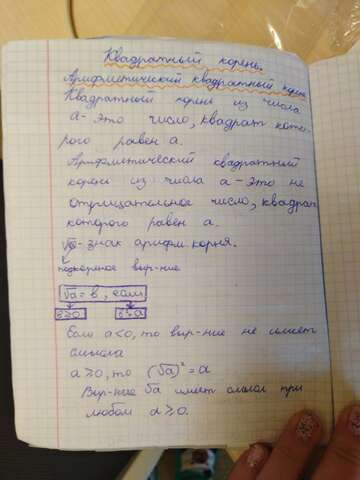 Квадратный корень.
Арифметический квадратный корень
Квадратный корень из числа
а - это число, квадрат кото-
рого равен а.
Арифметический квадратный
корень из числа а - это не
отрицательное число, квадрат
которого равен а.
√ - знак арифм. корня.
подкорное выр-ние
√a = в, если
в≥0
Если а<0, то выр-ние не имеет
смысла
а≥0, то (√a)² = а
Выр-ние √a имеет смысл при
любом а≥0.